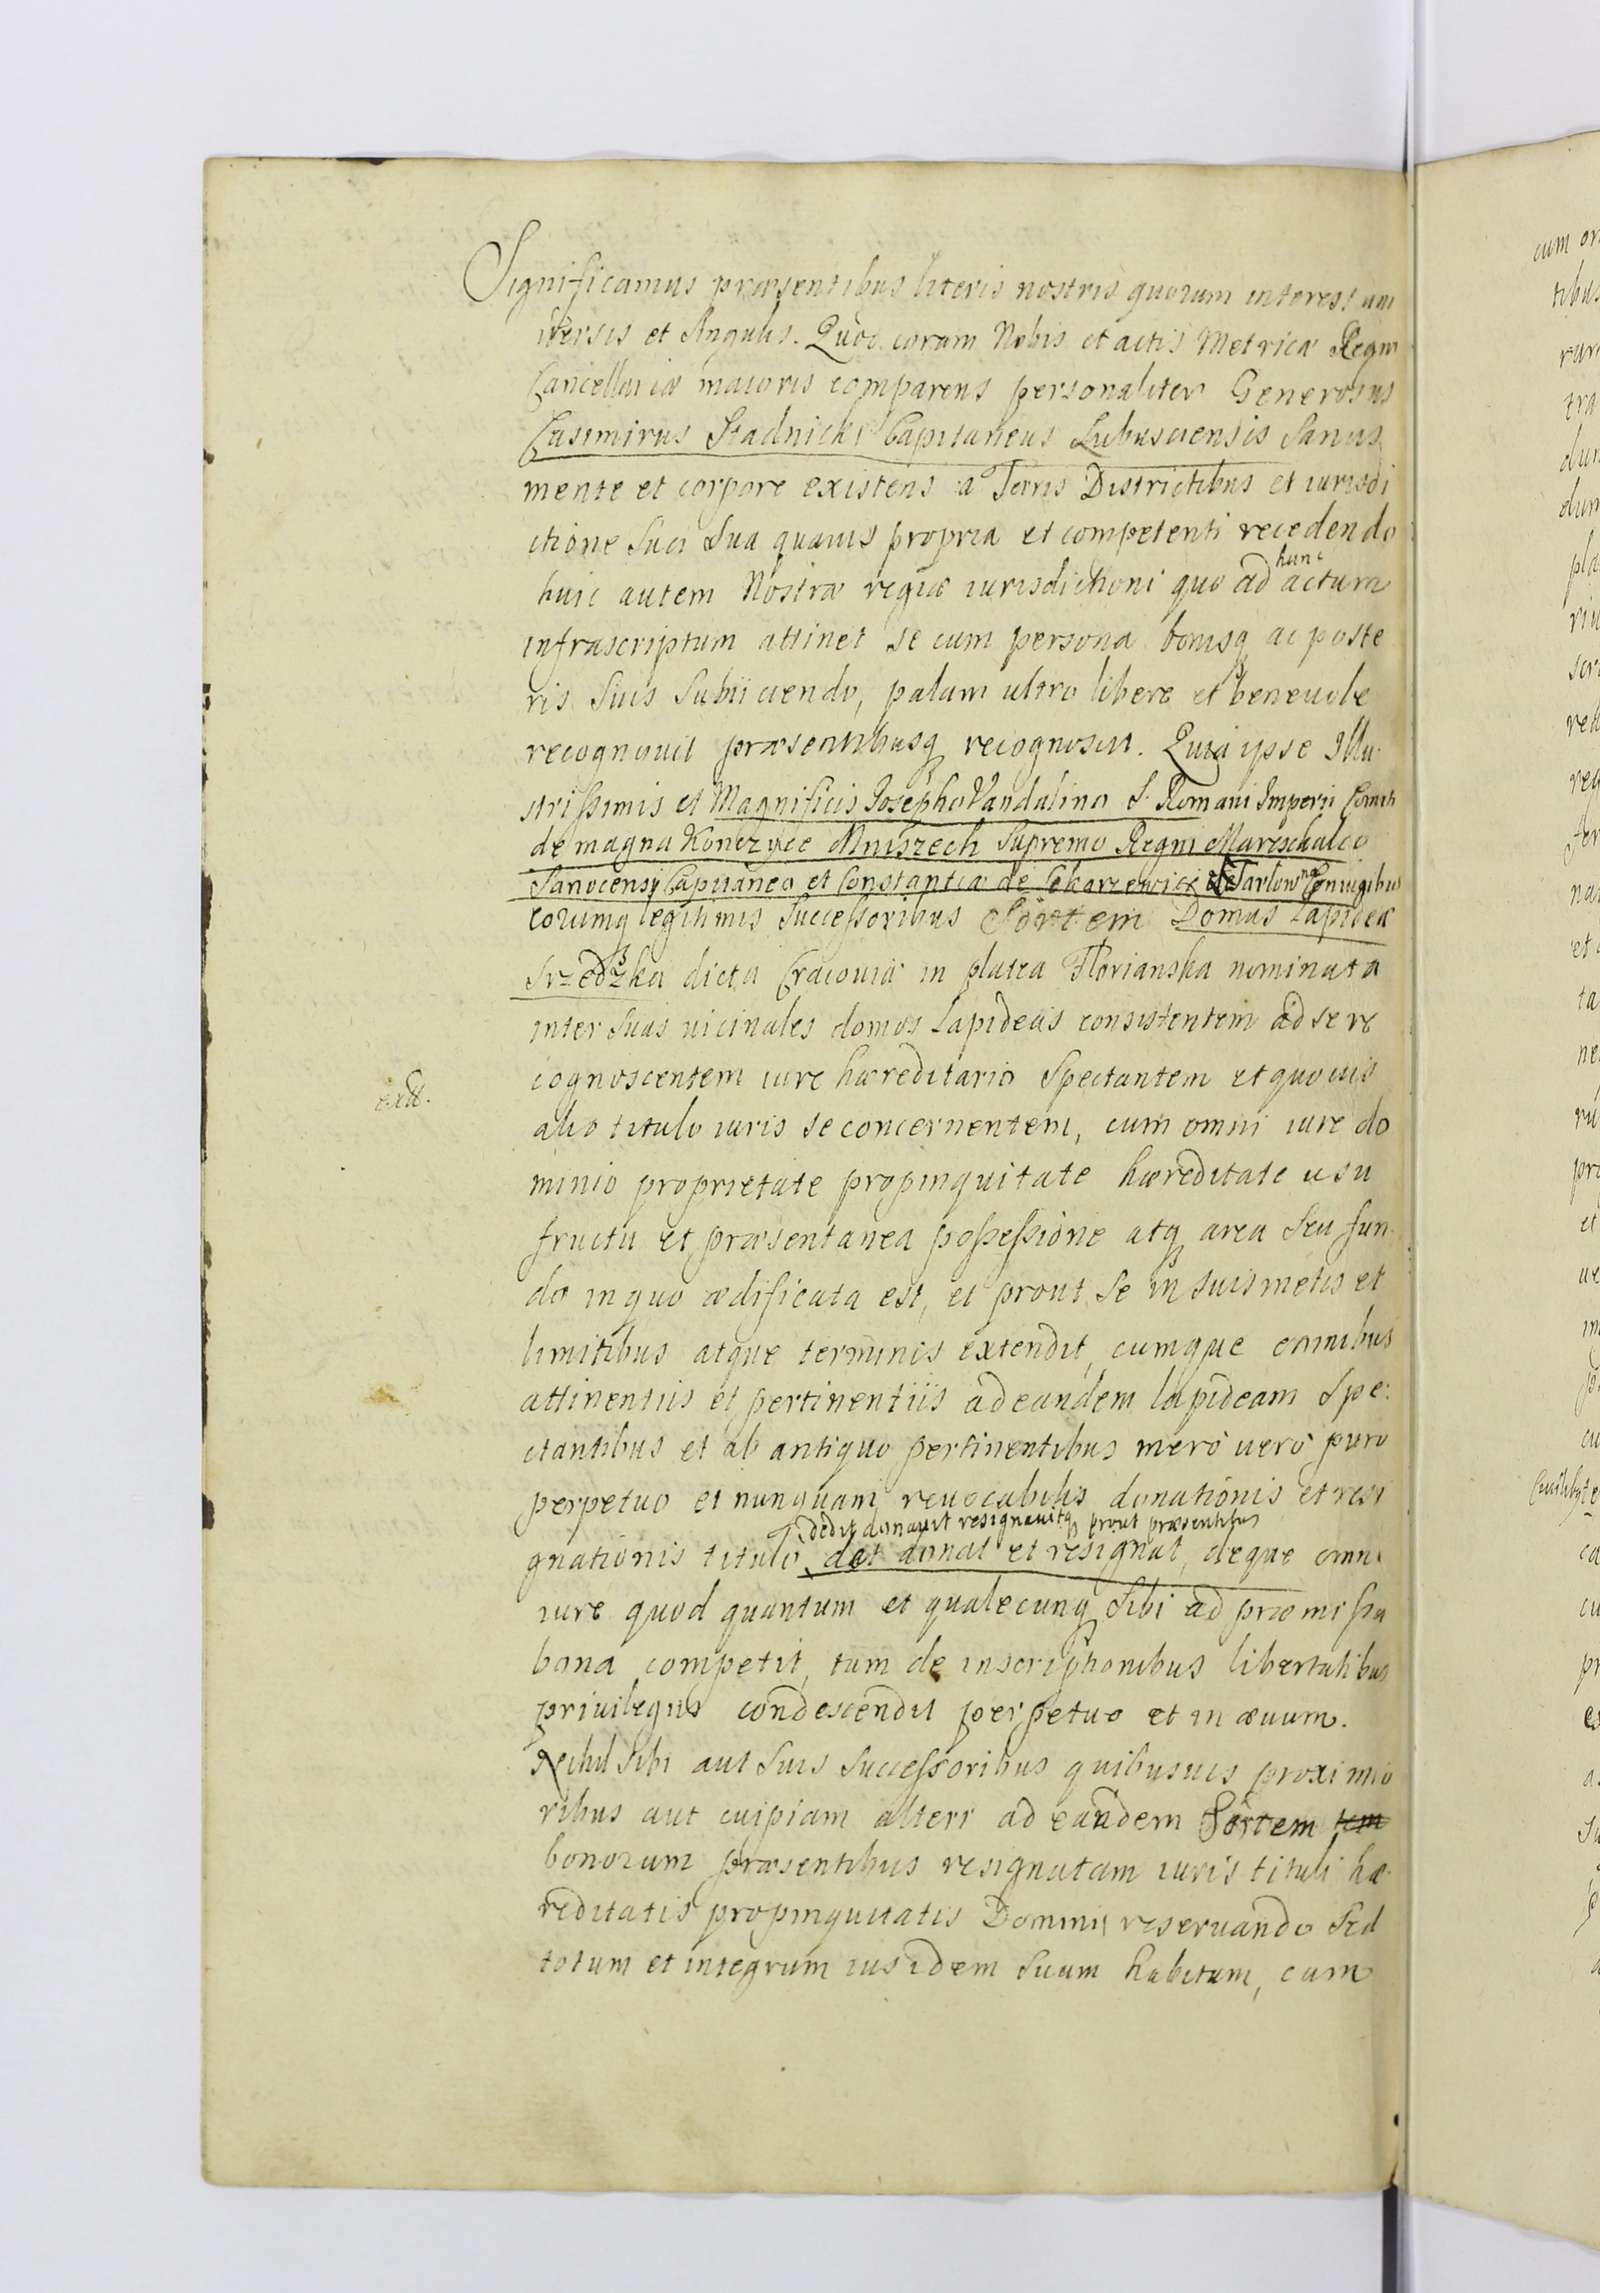 Significamus præsentibus literis nostris quorum interest uni
versis et Singulis. Quod coram Nobis et actis Metricæ Regni
Cancellariæ maioris comparens personaliter Generosus
Casimirus Stadnicki Capitaneus Lubaciensis Sanus
mente et corpore existens a Terris Districtibus et iurisdi
ctione Suci Sua quavis propria et competenti recedendo
huic autem Nostræ regiæ iurisdictioni quo ad hunc actum
infrascriptum attinet se cum persona bonisq ac poste
ris Suis Subiiciendo, palam ultro libere et beneuole
recognouit præsentibusq recognoscit. Quia ipse Illu
strissimis et Magnificis Josepho Vandalino S. Romani Imperii Comiti
de magna Konczyce Mniszech Supremo Regni Mareschalco
Sanocensi Capitaneo et Constantiæ de Tarłowna Coniugibus
eorumq legitimis Successoribus Sortem Domus Lapideæ
dicta Cracouiæ in platea Florianska nominata
inter Suas uicinales domos Lapideas consistentem ad se re
cognoscentem iure hæreditario Spectantem et quouis
alio titulo iuris se concernentem, cum omni iure do
minio proprietate propinquitate hæreditate usu
fructu et præsentanea possessione atq area Seu fun
do in quo ædificata est, et prout Se in suis metis et
limitibus atque terminis extendit, cumque omnibus
attinentiis et pertinentiis ad eandem lapideam Spe:
ctantibus et ab antiquo pertinentibus mero uero puro
perpetuo et nunquam reuocabilis donationis et resi
dedit donauit resignauitq prout præsentibus
gnationis titulo, dat donat et resignat, deque omni
iure quod quantum et qualecunq Sibi ad præmissa
bona competit, tum de inscriptionibus libertatibus
priuilegiis condescendit perpetuo et in æuum.
Nihil Sibi aut Suis Successoribus quibusuis proximio
ribus aut cuipiam alteri ad eandem Sortem tem
bonorum præsentibus resignatam iuris tituli hæ
reditatis propinquitatis Dominii reseruando Sed
totum et integrum ius idem Suum habitum, cum